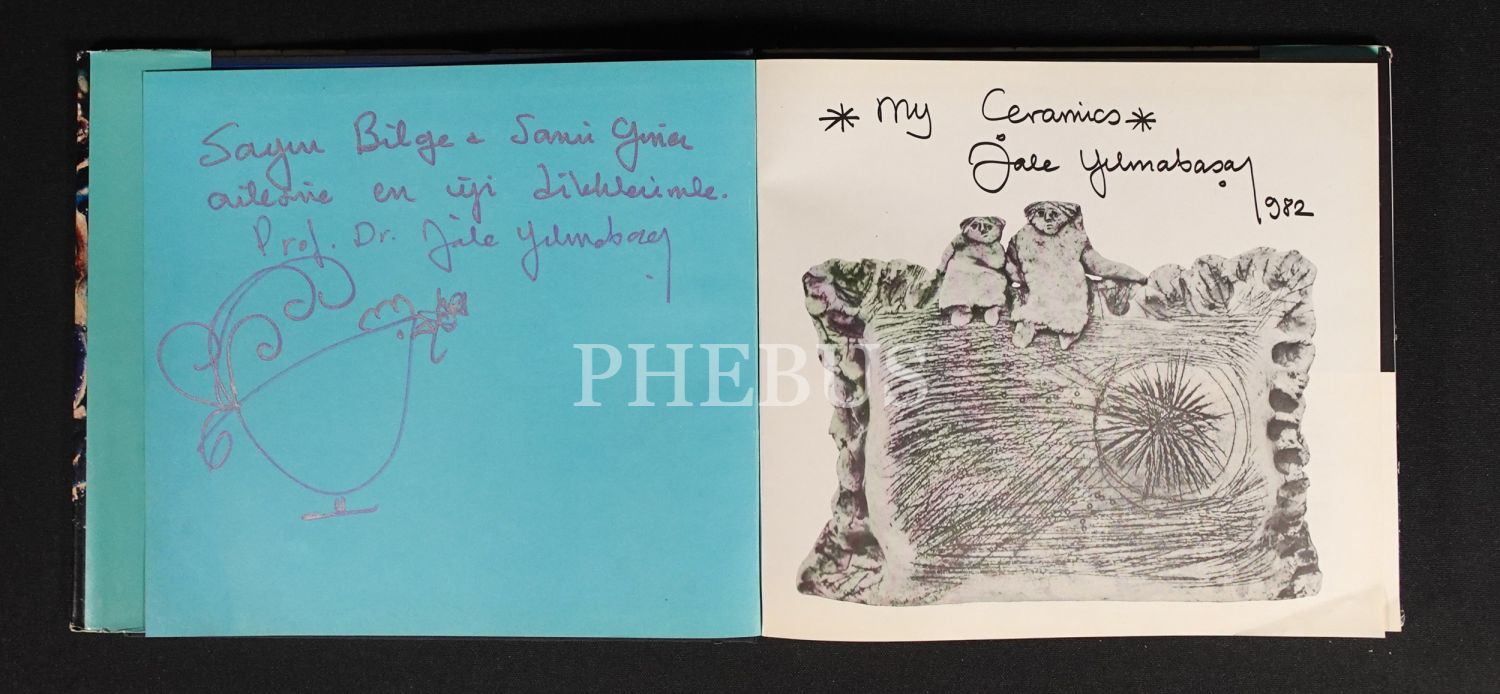 Sayın Bilge - Sami Güner
ailesine en iyi dileklerimle.
Prof. Dr. Jale Yılmabaşar
* My Ceramics *
Jale Yılmabaşar
982
PHEBUS